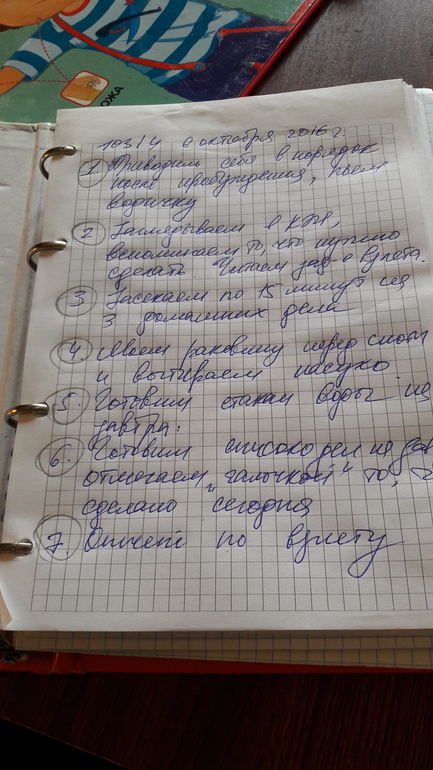 ОЖА
103/4 6 октября 2016 г.
1 Приводим себя в порядок
после пробуждения, пьем
водичку
2 Заглядываем в КЭЛ,
вспоминаем то, что нужно
сделать Читаем зад. о взлета.
3 Засекаем по 15 минут на
3 домашних дела
4. Моем раковину перед сном
и вытираем насухо.
5. Готовим стакан воды на
завтра.
6. Готовим список дел на зав
отмечаем "галочкой" то, ч
сделано сегодня
7 Отчет по взлету